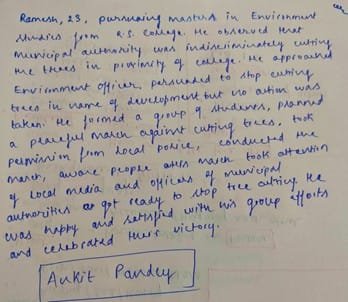 Ramesh, 23, pursuing masters in Environment
studies from R.S. College. He observed that
municipal authority was indiscriminately cutting
the trees in proximity of college. He approached
Environment officer, persuaded to stop cutting
trees in name of development but no action was
taken. He formed a group of students, planned
a peaceful march against cutting trees, took
permission from local police, conducted the
march, aware people this march took attention
of local media and officers of municipal
authorities got ready to stop tree cutting. He
was happy and satisfied with his group efforts
and celebrated their victory.
Ankit Pandey